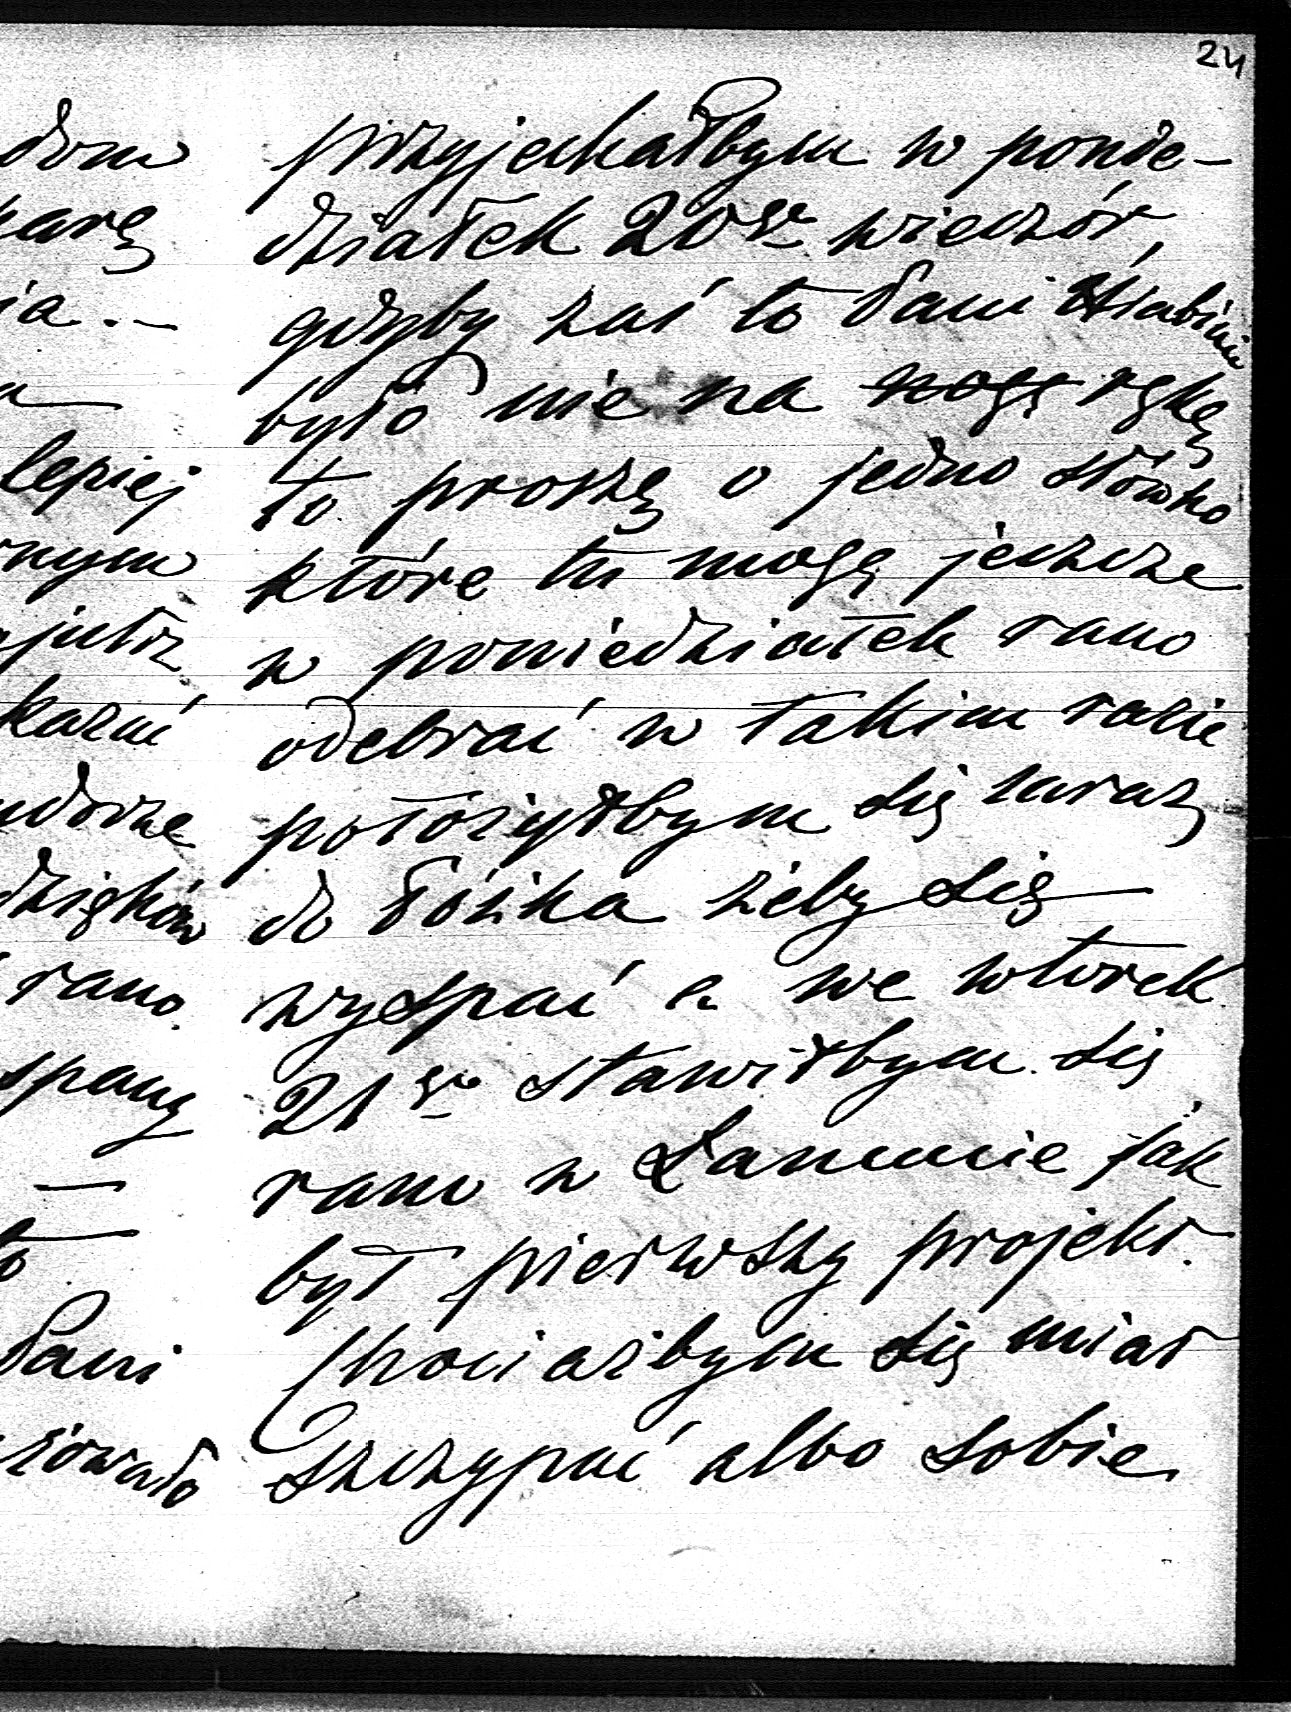 24
dom
karę
ia.—
a—
lepiej
nym
jutrz
kazać
udorze
dzięków
rano.
spany
—
to
Pani
zowało
przyjechałbym w ponie-
działek 20go wieczór,
gdyby zaś to Pani Hrabinie
było nie na nogę rękę
to proszę o jedno słówko
które tu mogę jeszcze
w poniedziałek rano
odebrać w takim razie
położyłbym się zaraz
do łóżka żeby się
wyspać a we wtorek
21go stawiłbym się
rano w Łańcucie jak
był pierwszy projekt.
Chociażbym się miał
szczypać albo sobie